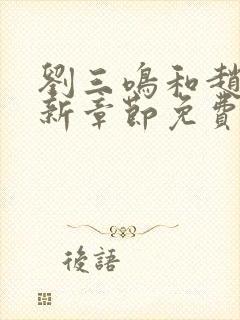 劉三鳴和趙
新章節免費
後語